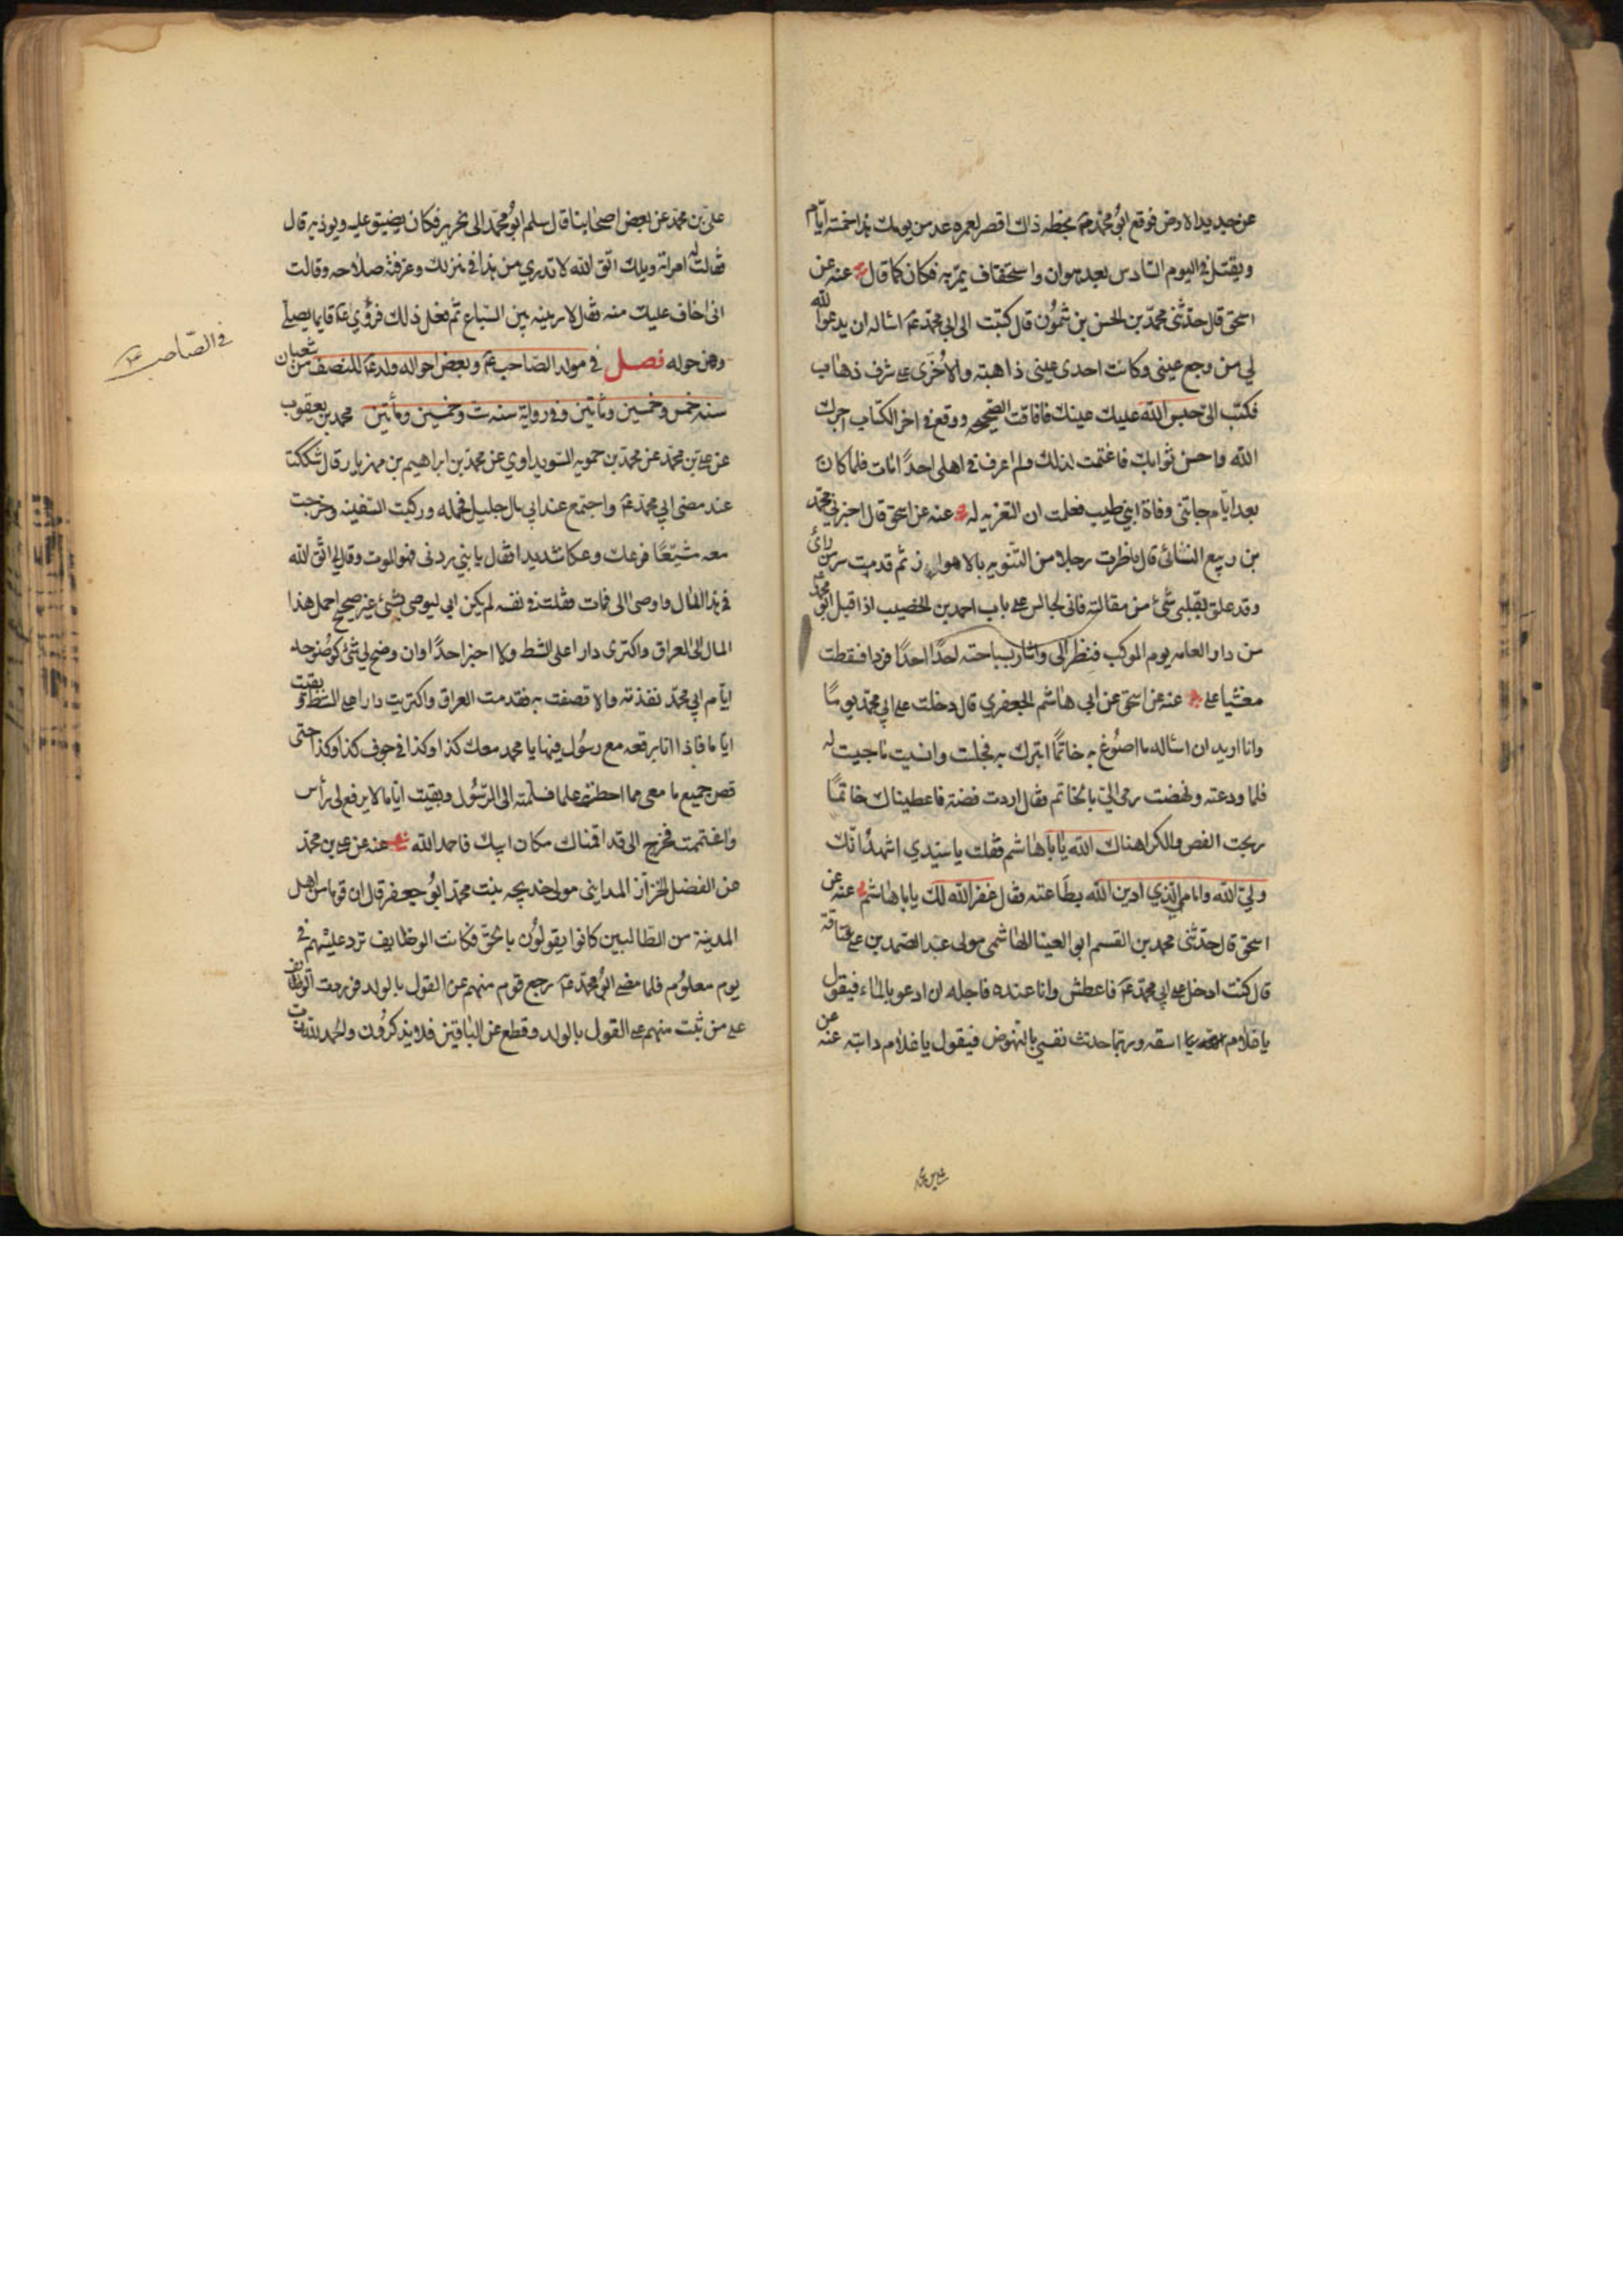 عن حديد الارض فوقع ابو محمد عم بخطه ذاك اقصر لعمره عد من يومك هذا خمسة ايام
ويقتل في اليوم السادس بعد هوان واستخفاف يمر به فكان كما قال عنه عن
اسحق قال حدثني محمد بن الحسن بن شمون قال كتبت الى ابي محمد عم اساله ان يدعو الله
لي من وجع عيني وكانت احدى عيني ذاهبة والاخرى على شرف ذهاب
فكتب الى حبس الله عليك عينك فافاقت الصحيحه ووقع في اخر الكتاب اجرك
الله واحسن ثوابك فاغتممت لذلك ولم اعرف في اهلى احدا مات فلما كان
بعد ايام جاتنى وفاة ابني طيب فعلمت ان التعزيه له عنه عن اسحق قال اخبرني محمد
بن ربيع النشائى قال ناظرت رجلا من الثنويه بالاهواز ثم قدمت سر من راى
وقد علق بقلبى شئ من مقالته فانى لجالس على باب احمد بن الخضيب اذ اقبل ابو محمد
من دار العامه يوم الموكب فنظر الى واشار بسباحته احدا احدا فردا فسقطت
مغشيا على عنه عن اسحق عن ابى هاشم الجعفري قال دخلت على ابي محمد يوما
وانا اريد ان اساله ما اصوغ به خاتما اتبرك به فجلست وانسيت ما جيت له
فلما ودعته ونهضت رمى الي بالخاتم فقال اردت فضة فاعطيناك خاتما
ربحت الفص والكرا هناك الله يا باهاشم فقلت يا سيدي اشهد انك
ولي الله وامامي الذي ادين الله بطاعته فقال غفر الله لك يا باهاشم عنه عن
اسحق قال حدثنى محمد بن القسم ابو العينا الهاشمى مولى عبد الصمد بن على عتاقة
قال كنت ادخل على ابي محمد عم فاعطش وانا عنده فاجله ان ادعو بالماء فيقول
يا غلام اسقه وربما حدثت نفسي بالنهوض فيقول يا غلام دابته عنه عن
على بن محمد عن بعض اصحابنا قال سلم ابو محمد الى نحرير فكان يضيق عليه ويوذيه قال
فقالت له امراته ويلك اتق الله لا تدري من هذا في منزلك وعرفته صلاحه وقالت
انى اخاف عليك منه فقال لارمينه بين السباع ثم فعل ذلك فرؤي عم قايما يصلي
وهي حوله فصل في مولد الصاحب عم وبعض احواله ولد عم للنصف من شعبان
سنه خمس وخمسين ومأتين وفي رواية سنه ست وخمسين ومأتين محمد بن يعقوب
عن على بن محمد عن محمد بن حمويه السويداوي عن محمد بن ابراهيم بن مهزيار قال شككت
عند مضى ابي محمد عم واجتمع عند ابي مال جليل فحمله وركبت السفينه وخرجت
معه مشيعا فوعك وعكا شديدا فقال يا بني ردنى فهو الموت وقال لى اتق الله
في هذا المال واوصى الى فمات فقلت في نفسه لم يكن ابي ليوصى بشئ غير صحيح احمل هذا
المال الى العراق واكترى دارا على الشط ولا اخبر احدا وان وضح لي شئ كوضوحه
ايام ابي محمد نفذته والا قصفت به فقدمت العراق واكتريت دارا على الشط وبقيت
اياما فاذا انا برقعه مع رسول فيها يا محمد معك كذا وكذا في جوف كذا وكذا حتى
قص جميع ما معى مما احط به علما فسلمته الى الرسول وبقيت اياما لا يرفع لي رأس
واغتممت فخرج الى قد اقمناك مكان ابيك فاحمد الله عنه عن على بن محمد
عن الفضل الخزاز المدايني مولى خديجه بنت محمد ابو جعفر قال ان قوما من اهل
المدينة من الطالبيين كانوا يقولون بالحق فكانت الوظايف ترد عليهم في
يوم معلوم فلما مضى ابو محمد عم رجع قوم منهم عن القول بالولد فوردت الوظايف
على من ثبت منهم على القول بالولد وقطع عن الباقين فلا يذكرون والحمد لله
في الصاحب عم